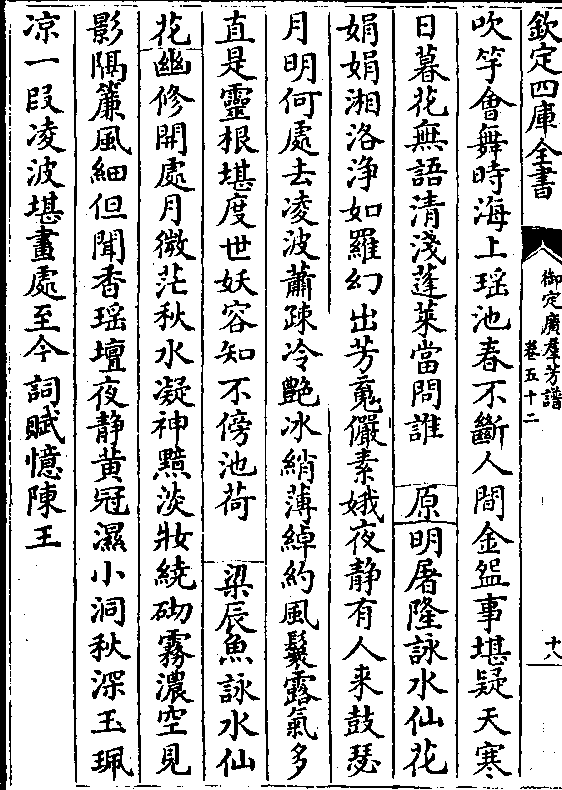 欽定四庫全書
御定廣羣芳譜
卷五十二
十八
吹竽會舞時海上瑶池春不斷人間金盌事堪疑天寒
日暮花無語清淺蓬萊當問誰　原明屠隆詠水仙花
娟娟湘洛淨如羅幻出芳魂儼素娥夜靜有人来鼓瑟
月明何處去凌波蕭疎冷艷冰綃薄綽約風鬟露氣多
直是靈根堪度世妖容知不傍池荷　梁辰魚詠水仙
花幽修開處月微茫秋水凝神黯淡妝繞砌霧濃空見
影隔簾風細但聞香瑶壇夜静黄冠濕小洞秋深玉珮
凉一段凌波堪畫處至今詞賦憶陳王